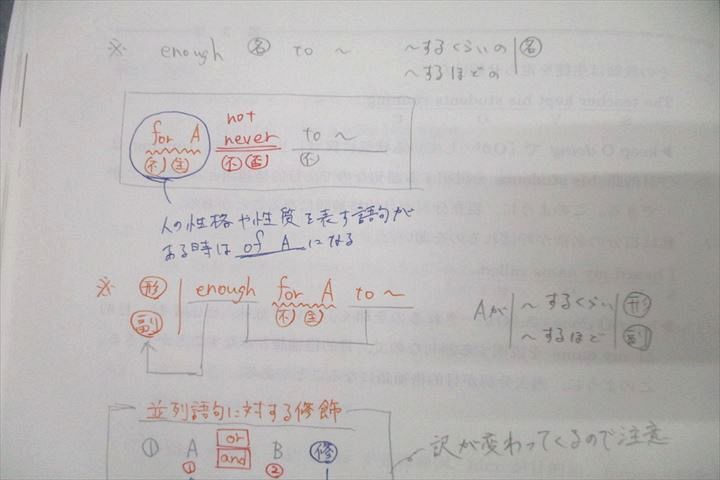 ※ enough 名 to ～ ～するくらいの 名
～するほどの
for A not never to ～
不 主 不 否 不
人の性格や性質を表す語句が
ある時は of A になる
※ 形 副 enough for A to ～
不 主
Aが ～するくらい 形
～するほど 副
並列語句に対する修飾
① A or and B 修
① ②
訳が変わってくるので注意
The teacher kept his students running